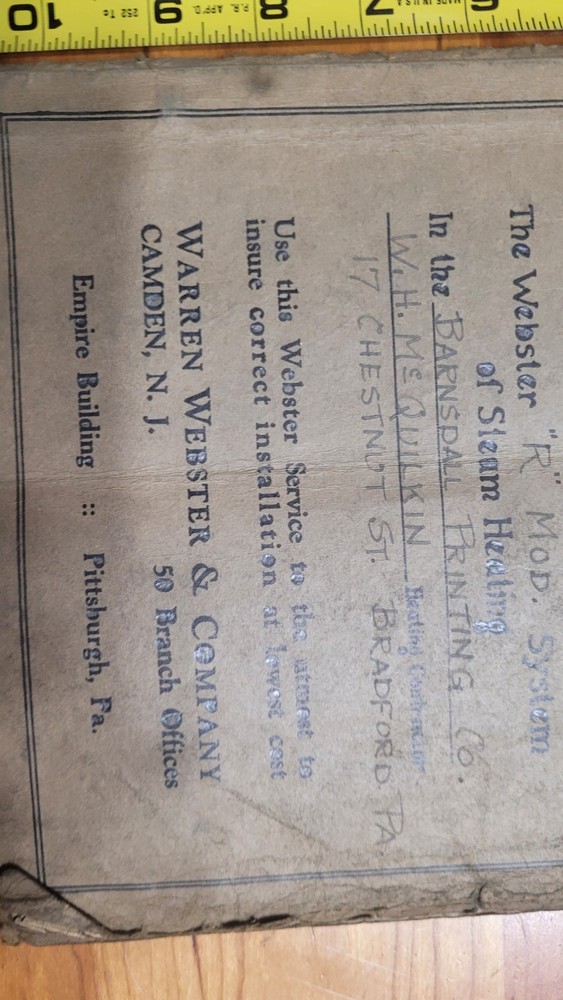 The Webster "R" MOD. System
of Steam Heating
In the BARNSDALL PRINTING CO.
W.H. McQUILKIN Heating Contractor
17 CHESTNUT ST. BRADFORD PA.
Use this Webster Service to the utmost to
insure correct installation at lowest cost
WARREN WEBSTER & COMPANY
CAMDEN, N. J. 50 Branch Offices
Empire Building :: Pittsburgh, Pa.
6 7 8 9 10
MADE IN U.S.A.
P.R. APP'D.